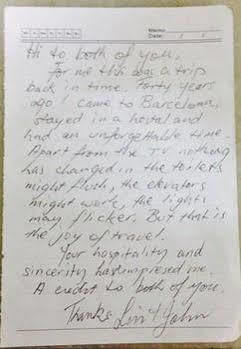 Memo
Date
Hi to both of you,
For me this was a trip
back in time. Forty years
ago I came to Barcelona,
stayed in a hostal and
had an unforgettable time.
Apart from the TV nothing
has changed in the toilets
might flush, the elevators
might work, the lights
may flicker. But that is
the joy of travel.
Your hospitality and
sincerity has impresed me.
A credit to both of you.
Thanks John